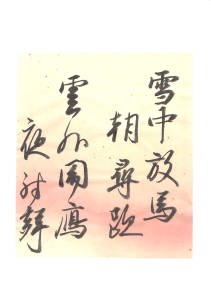 雪中放馬
朝尋跡
雲外聞鴈
夜射聲